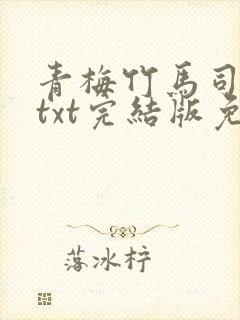 青梅竹马司
txt完结版免
落冰柠